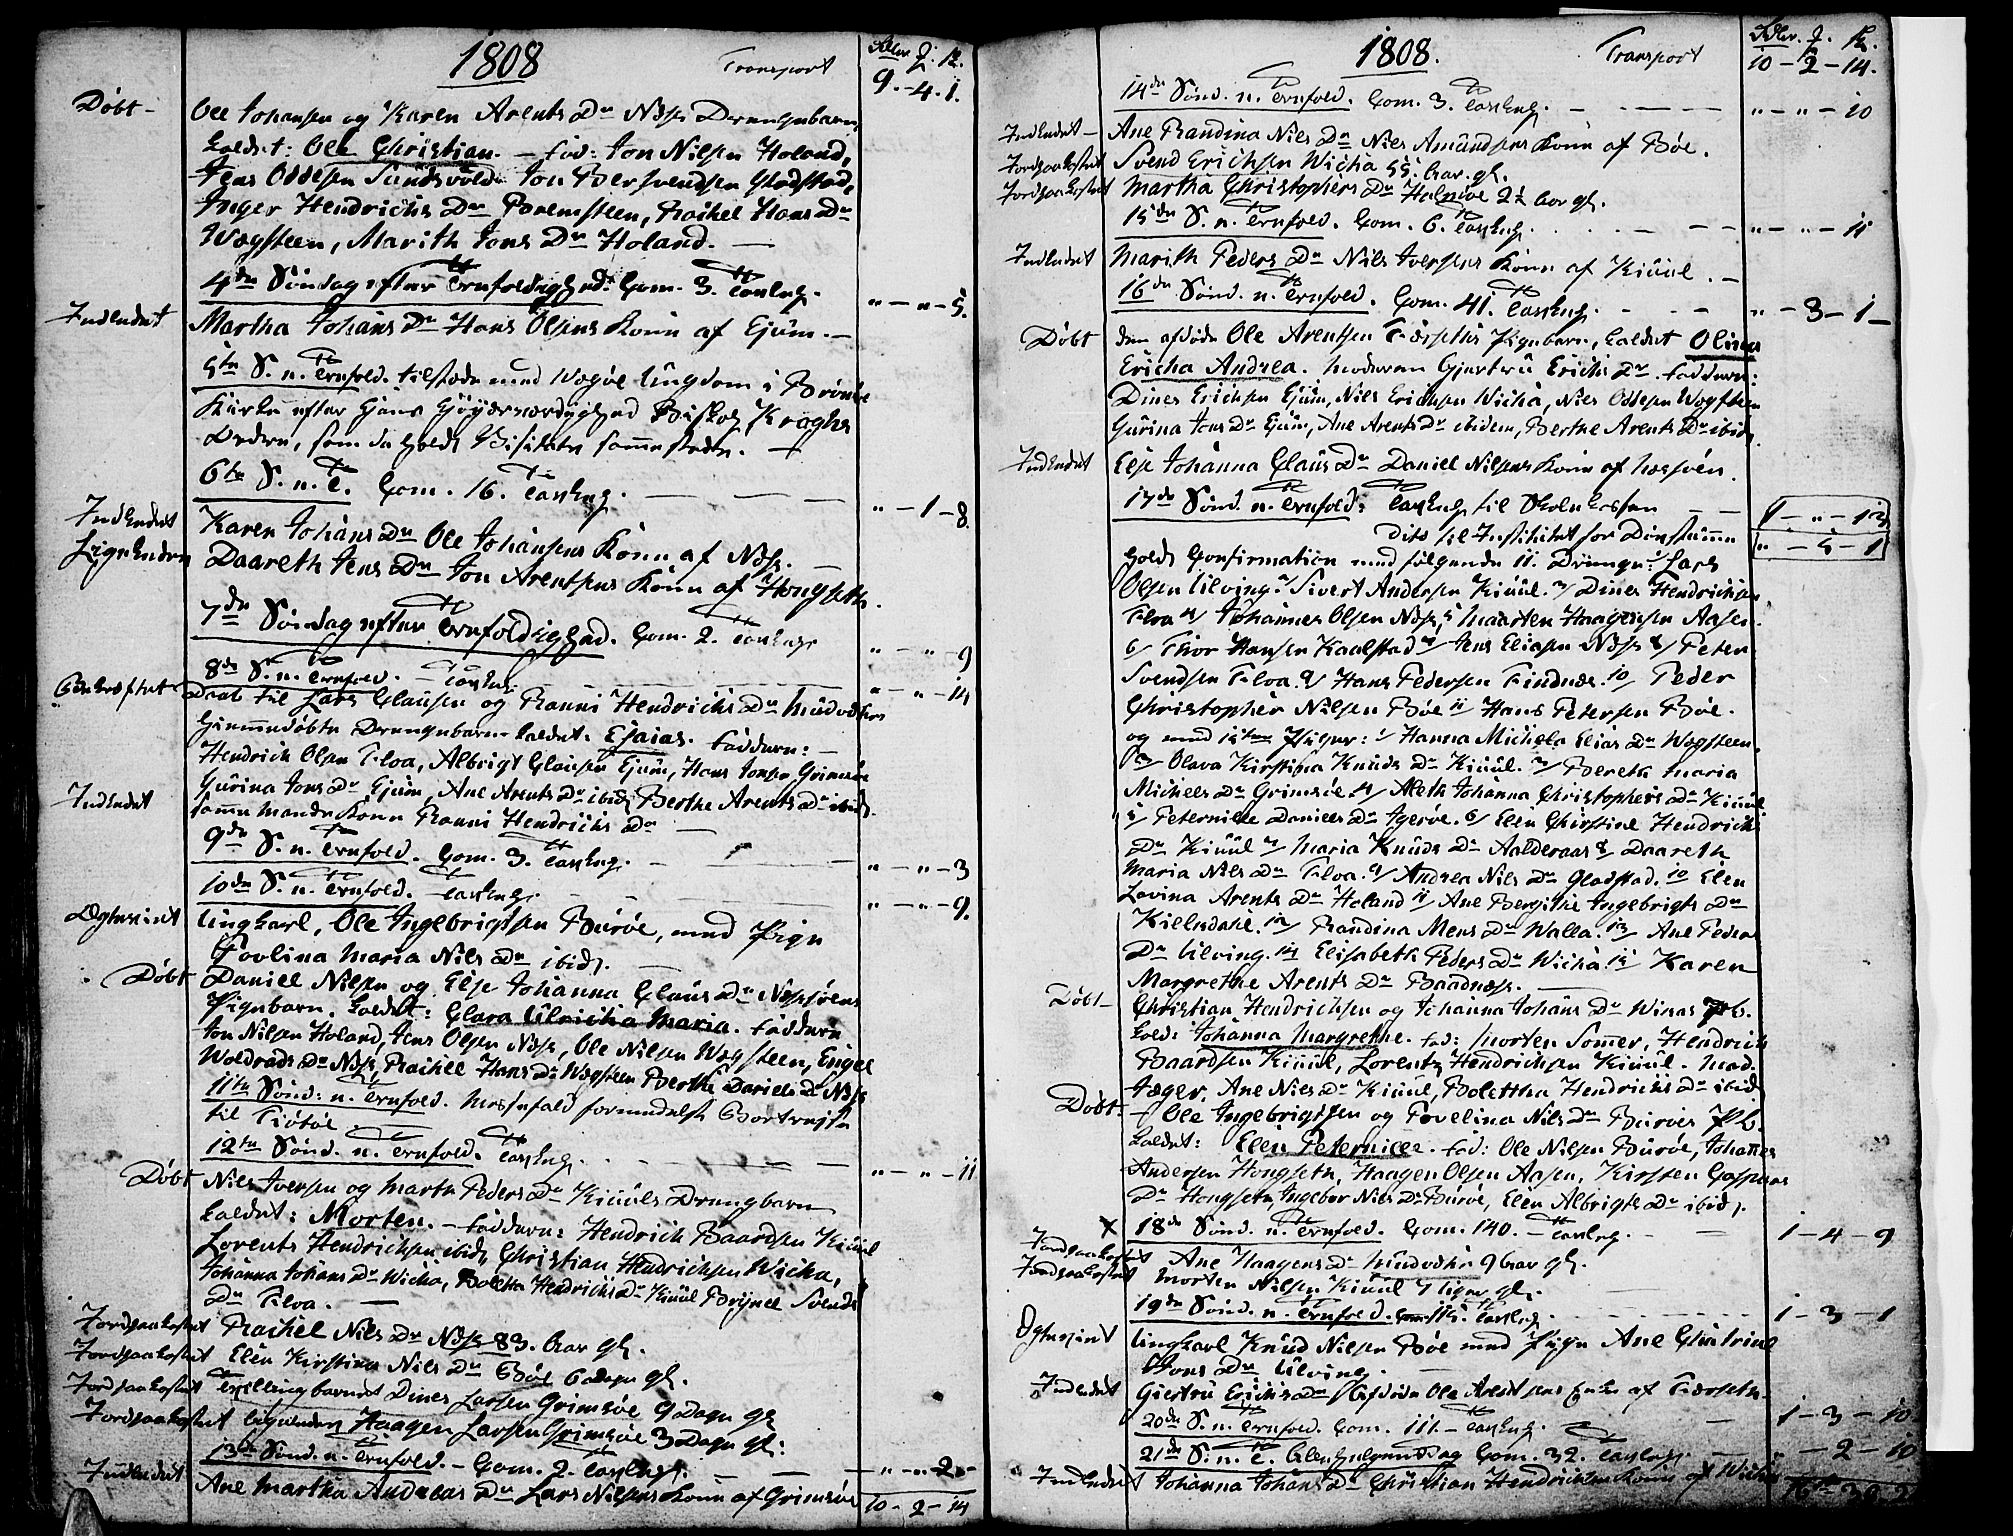 1808
Transport
9.-4.1.
Døbt- Ole Johansen og Karen Arents Dr Næss Drengebarn,
kaldet: Ole Christian. - Fad: Jon Nilsen Holand,
Jens Oddesen Sundsvold, Jon Bersvendsen Gladstad,
Inger Hendrichs Dr Bremsteen, Rachel Hans Dr
Wægsteen, Marith Jons Dr Holand. -
4de Søndag efter Trefoldighed. Com. 3. " - " - 5.
Indledet Martha Johans Dr Hans Olsens Kone af Ejum. -
5te S. n. Trefold. tilstæde med Wægøe Ungdom i Brønøe
Kirke efter Hans Høyærværdighed Biskop Kroghs
Ordern, som da holdt Visitatz sammesteds. -
6te S. n. T. Com. 16. " - 1 - 8.
Indledet Karen Johans Dr Ole Johansens Kone af Næss. -
Daareth Jens Dr Jon Arentsens Kone af Hongseth.
7de Søndag efter Trefoldighed. Com. 2. " - " - 9
8de S. n. Trefold. - " - " - 14
Daab til Lars Clausen og Ranni Hendrichs Dr
Hiemmedøbte Drengebarn kaldet: Esaias. Faddere: -
Hendrich Olsen Floa, Albrigt Clausen Ejum, Hans Jonsen Grimsøe
Gurina Jons Dr Ejum, Ane Arents Dr ibid, Berthe Arents Dr ibid.
Indledet samme Mands Kone Ranni Hendrichs Dr -
9de S. n. Trefold. Com. 3. " - " - 3
10de S. n. Trefold. " - " - 9.
Ungkarl, Ole Ingebrigtsen Burøe, med Pige
Povlina Maria Nils Dr ibid. -
Døbt Daniel Nilsen og Else Johanna Claus Dr
Pigebarn, kaldet: Clara Ulricha Maria. Faddere
Jon Nilsen Holand, Jens Olsen Næss, Ole Nilsen Wægsteen, Engel
Woldrads Dr Næss, Rachel Hans Dr Wægsteen Berthe Daniels Dr Næss
11te Sønd: n. Trefold. Messefald formedelst Bortreise
til Tiøtøe
12te Sønd. n. Trefold. " - " - 11
Døbt Nils Iversen og Marth Peders Dr Kiuuls Drengebarn
kaldet: Morten. - Faddere: Hendrich Baardsen Kiuul
Lorents Hendrichsen ibid, Christian Hendrichsen Wicha,
Johanna Johans Dr Wicha, Boletta Hendrichs Dr Kiuul Brynel Svends
Dr Floa. -
Jordpaakastet Rachel Nils Dr Næss 83. Aar gl.
Jordpaakastet Elen Kirstina Nils Dr Bøe 6 Dage gl.
Jordpaakastet Tvillingbarnet Dines Larsen Grimsøe 9 Dage gl
Jordpaakastet ligeleden Haagen Larsen Grimsøe 3 Dage gl:
13de Sønd. n. Trefold. - Com. 2. " - " 2 -
Indledet Ane Martha Andreas Dr Lars Nilsens Kone af Grimsøe
10 - 2 - 14
1808.
Transport
10 - 2 - 14.
14de Sønd. n. Trefold. Com. 3. " - " - 10
Indledet - Ane Randina Nils Dr Nils Amundsens Kone af Bøe.
Jordpaakastet Svend Erichsen Wicha 55. Aar gl.
Jordpaakastet Martha Christophers Dr 2½ Aar gl.
15de S. n. Trefold. Com. 6. " - " - 11
Indledet Marith Peders Dr Nils Iversens Kone af Kiuul. -
16de Sønd. n. Trefold. Com. 41. " - 3 - 1 -
Døbt den afdøde Ole Arentsen Pigebarn, kaldet Olina
Ericha Andrea. Moderen Gjertru Erichs Dr. Faddere:
Dines Erichsen Ejum, Nils Erichsen Wicha, Nils Oddesen Wægsteen
Gurina Jons Dr Ejum, Ane Arents Dr ibidem, Berthe Arents Dr ibid.
Indledet Else Johanna Claus Dr Daniel Nilsens Kone af
17de Sønd. n. Trefold. til Skolekassen 1 - " - 13
Dito til Institutet for Døvstumme " - 5 - 1
Holdt Confirmation med følgende 11. Drenge: 1/ Lars
Olsen Ulving. 2/ Sivert Andersen Kiuul. 3/ Dines Hendrichsen
Floa 4/ Johannes Olsen Næss, 5/ Maarten Haagensen Aasen.
6/ Thor Hansen Kaalstad 7/ Jens Eliasen Næss 8/ Peter
Svendsen Floa. 9/ Hans Pedersen Tindnæs. 10/ Peder
Christopher Nilsen Bøe 11/ Hans Petersen Bøe.
og med 15ten Piger: 1/ Hanna Michela Elias Dr Wægsteen.
2/ Olava Kirstina Knuds Dr Kiuul. 3/ Bereth Maria
Michels Dr Grimsøe. 4/ Aleth Johanna Christophers Dr Kiuul
5/ Peternille Daniels Dr Igerøe. 6/ Elen Christine Hendrichs
Dr Kiuul 7/ Maria Knuds Dr Aalderaas 8/ Daareth
Maria Nils Dr Floa. 9/ Andrea Nils Dr Gladstad. 10 Elen
Lovina Arents Dr Holand 11/ Ane Bergithe Ingebrigts Dr
12/ Randina Mens Dr Walla. 13/ Ane Peders
Dr Ulving. 14 Elisabeth Peders Dr Wicha. 15 Karen
Margrethe Arents Dr Baadnæss. -
Døbt - Christian Hendrichsen og Johanna Johans Dr Wichas Pb.
kald: Johanna Margrethe. Fad: Morten Sommer, Hendrich
Baardsen Kiuul, Lorentz Hendrichsen Kiuul. Mad.
Jæger, Ane Nils Dr Kiuul, Bolettha Hendrichs Dr ibid
Døbt - Ole Ingebrigtsen og Povelina Nils Dr Burøes Pb.
kaldet: Elen Peternille. Fad: Ole Nilsen Burøe, Johannes
Andersen Hongseth, Haagen Olsen Aasen, Kirsten Caspers
Dr Hongseth, Ingebor Nils Dr Burøe, Elen Albrigts Dr ibid.
X 18de Sønd. n. Trefold. Com. 140. - 1 - 4 - 9
Jordpaakastet Ane Haagens Dr 9 Aar gl.
Jordpaakastet Morten Nilsen Kiuul 7 Uger gl.
19de Sønd. n. Trefold. Com. 1 - 3 - 1
Ungkarl Knud Nilsen Bøe med Pige Ane Chatrine
Jons Dr Ulving. -
Indledet Giertru Erichs Dr Afdøde Ole Arentsens Enke af
20de S. n. Trefold. Com. 111. - 1 - 3 - 10
21de S. n. T. Com. 32. " - 2 - 10
Indledet Johanna Johans Dr Christian Hendrichsens Kone af Wicha